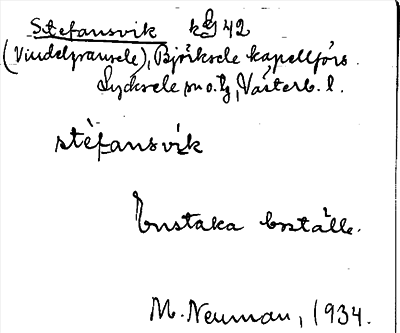 Stefansvik kg 42
(Vindelgransele), Björksele kapellförs.
Lycksele sn o. tg, Västerb. l.
stèfansvik
Enstaka boställe.
M. Neuman, 1934.